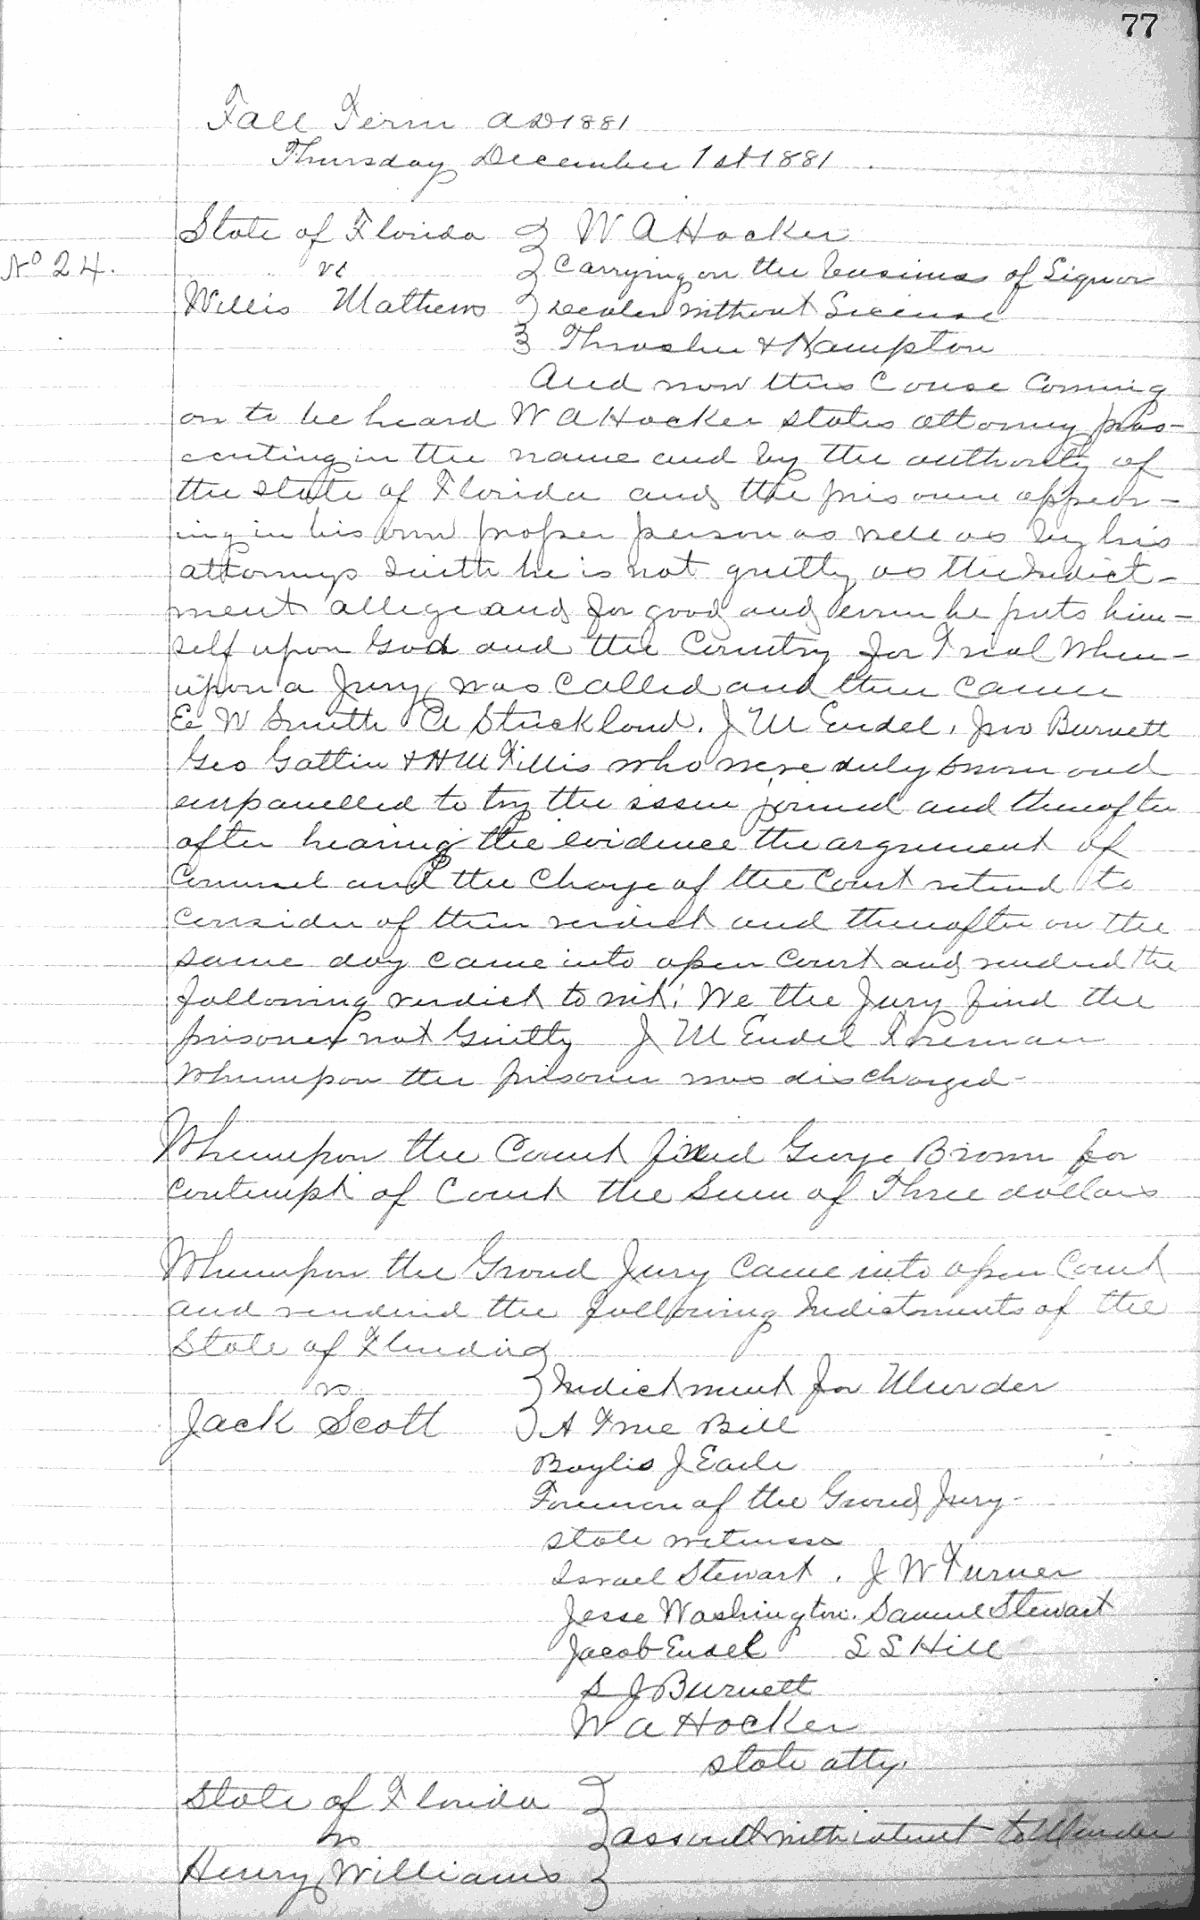 77
Fall Term AD 1881
Thursday December 1st 1881
State of Florida W A Hocker
No 24. vs Carrying on the business of Liquor
Willis Mathews Dealer without License
Thrasher & Hampton
And now this Couse Coming
on to be heard W A Hocker states attorney pros-
ecuting in the name and by the authority of
the state of Florida and the prisoner appear-
ing in his own proper person as well as by his
attorneys Saith he is not guilty as the Indict-
ment allege and for good and he puts him-
self upon God and the Country for Trial When-
upon a Jury was Called and then Came
E W Smith Strickland. J M Endel, Jno Burnett
Geo Gattlin & H M Tillis who were duly sworn and
empanelled to try the issue joined and thereafter
after hearing the evidence the argument of
Counsel and the Charge of the Court retired to
Consider of their verdict and thereafter on the
same day came into open Court and rendered the
following verdict to wit: We the Jury find the
prisoner not Guilty J M Endel Foreman
Whereupon the prisoner was discharged-
Whereupon the Court fined George Brown for
Contempt of Court the Sum of Three dollars
Whereupon the Grand Jury Came into open Court
and rendered the following Indictments of the
State of Florida
vs Indictment for Murder
Jack Scott A True Bill
Baylis J Earle
Foreman of the Grand Jury-
state witnesses
Israel Stewart. J W Turner
Jesse Washington. Samuel Stewart
Jacob Endel S S Hill
S J Burnett
W A Hocker
state atty.
State of Florida
vs assault with intent to Murder
Henry Williams